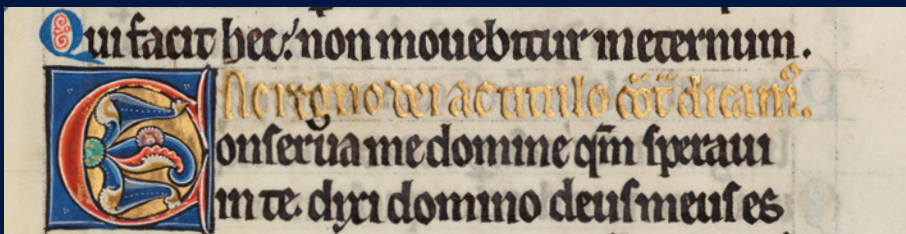 Qui facit hec: non mouebitur in eternum.
regno dei ac titulo
Conſerua me domine qm̄ ſperaui
in te. dixi domino deuſ meuſ es